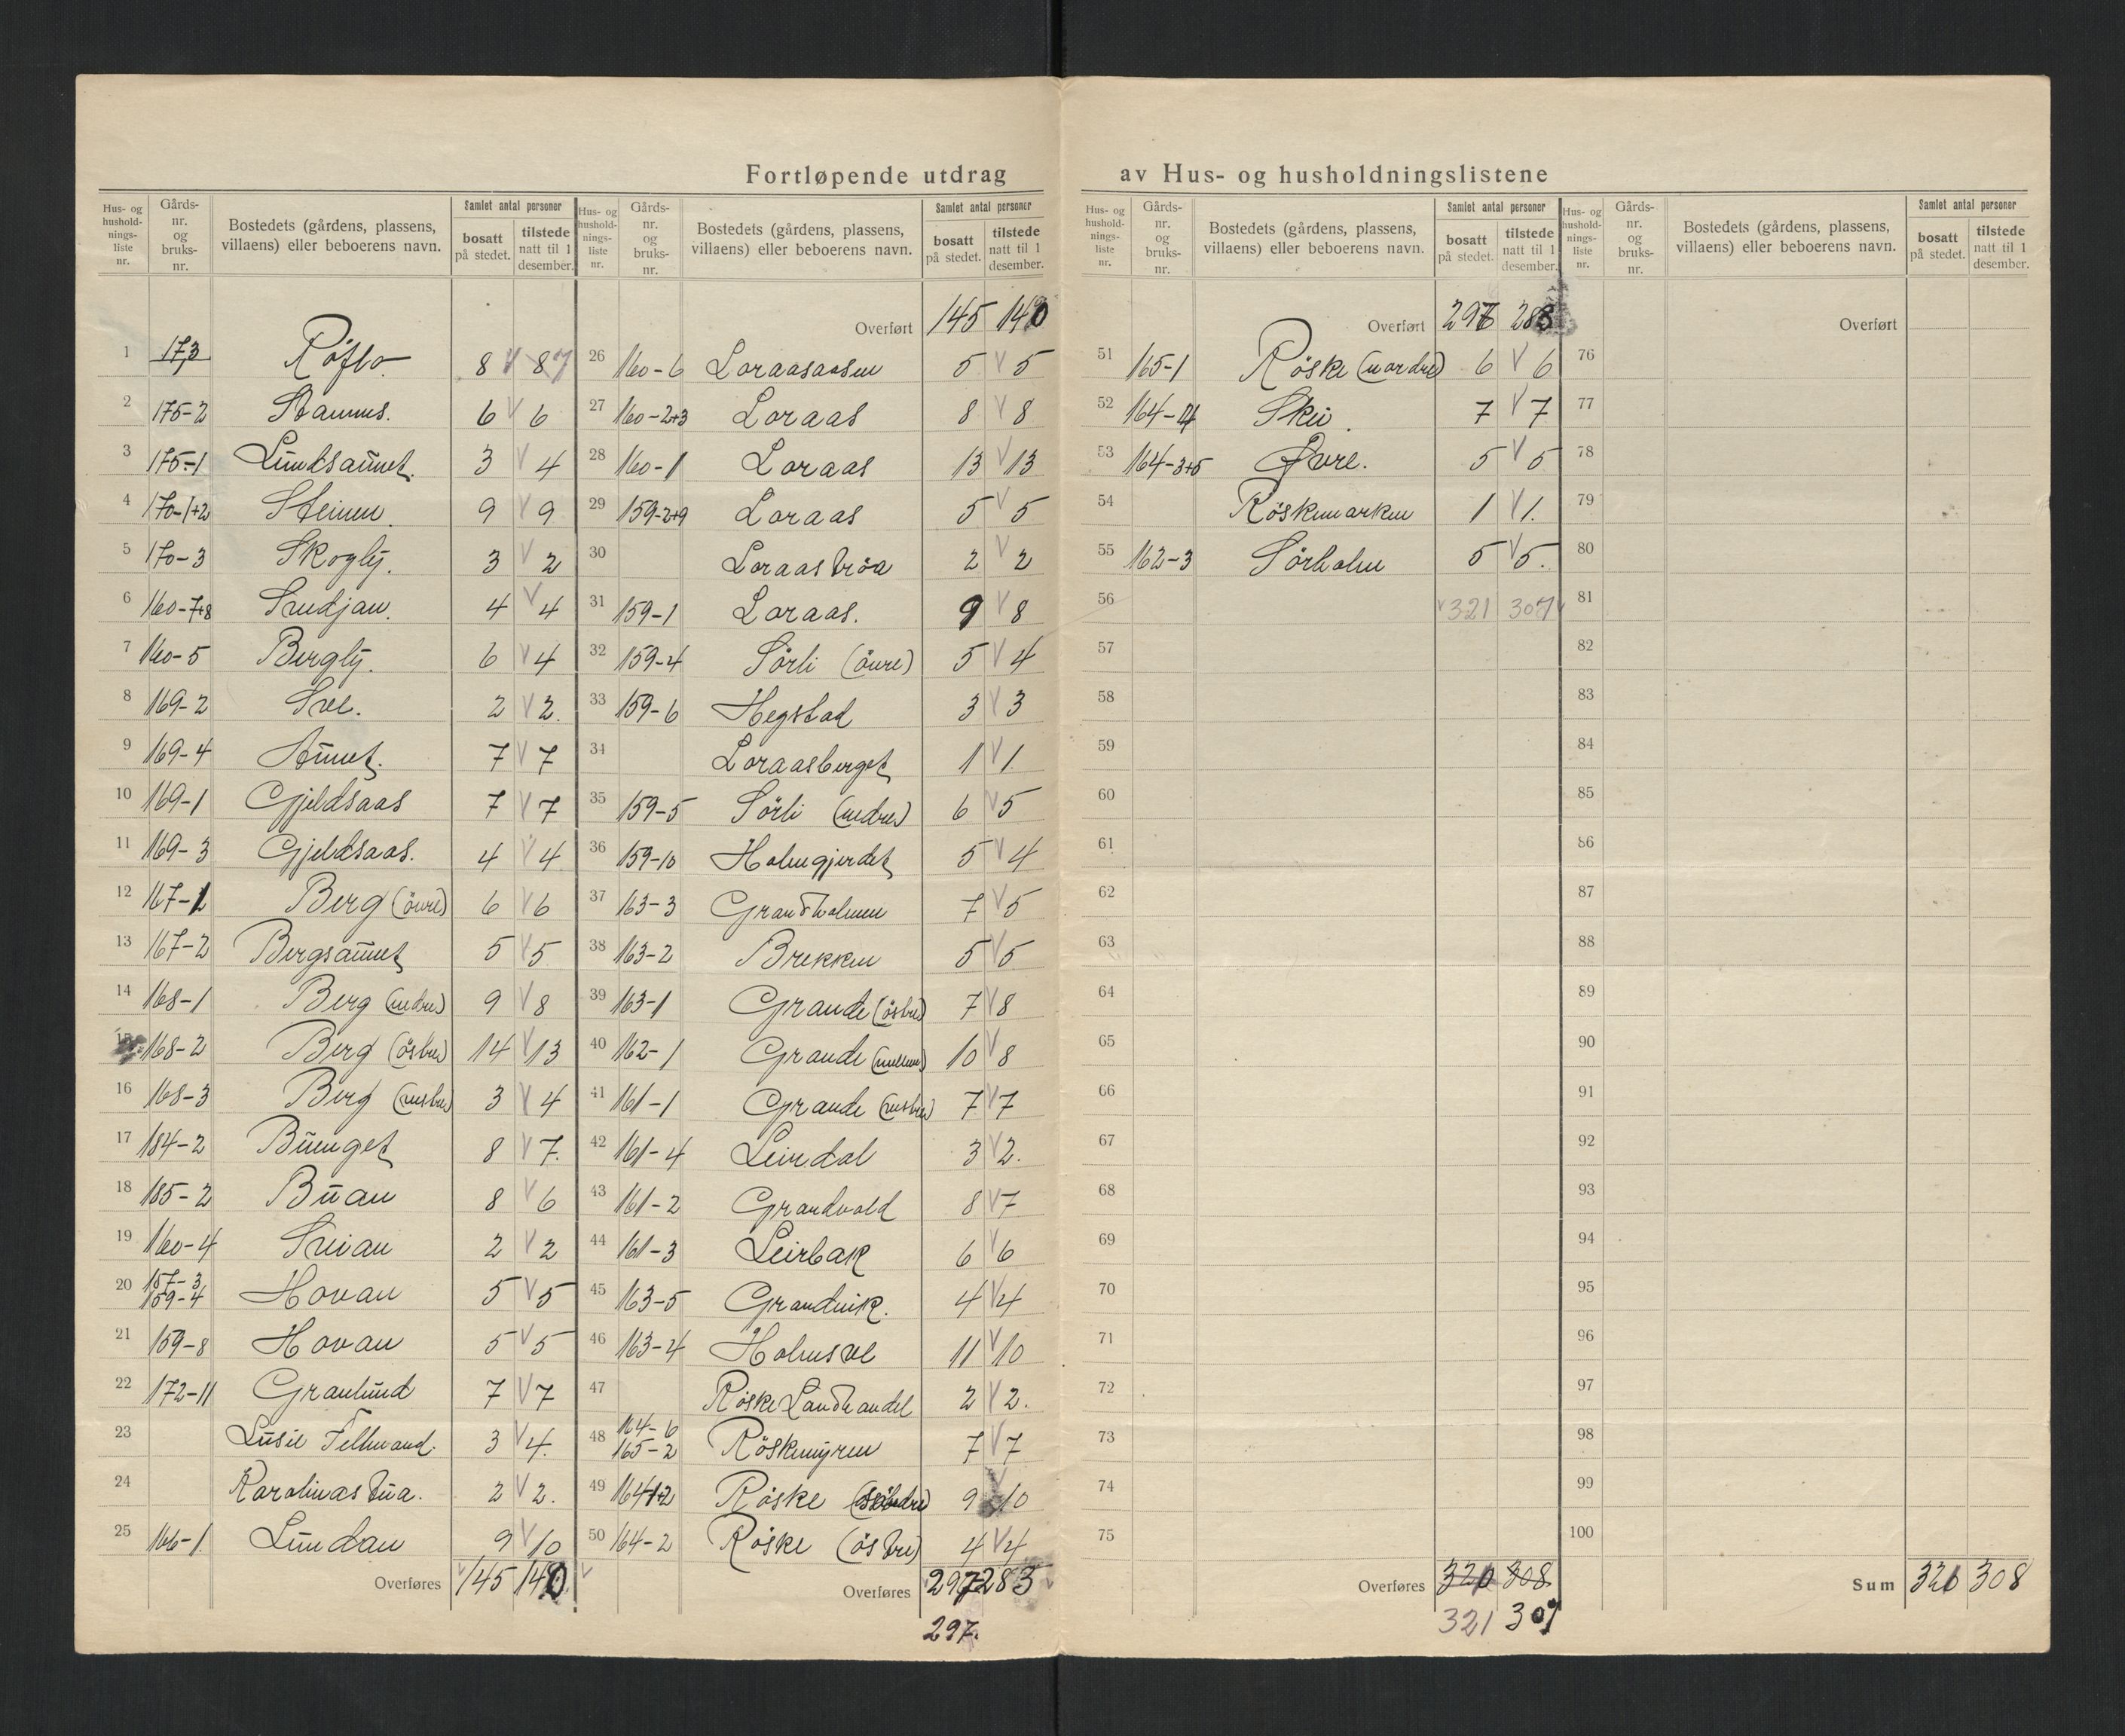 Fortløpende utdrag av Hus- og husholdningslistene
Hus- og hushold-nings-liste nr. Gårds-nr. og bruks-nr. Bostedets (gårdens, plassens, villaens) eller beboerens navn. Samlet antal personer bosatt på stedet. tilstede natt til 1 desember.
1 173 Röflo 8 V 8 7
2 175-2 Stamns. 6 V 6
3 175-1 Lundsaunet. 3 V 4
4 170-1+2 Steinen. 9 V 9
5 170-3 Skogly. 3 V 2
6 160-7+8 4 V 4
7 160-5 Bergly. 6 V 4
8 169-2 Sve. 2 V 2.
9 169-4 Aunet. 7 V 7
10 169-1 Gjeldsaas 7 V 7
11 169-3 Gjeldsaas. 4 V 4
12 167-1 Berg (övre) 6 V 6
13 167-2 Bergsaunet 5 V 5
14 168-1 Berg (nedre) 9 V 8
15 168-2 Berg (östre) 14 V 13
16 168-3 Berg (vestre) 3 V 4
17 184-2 Buenget 8 V 7.
18 185-2 Buan 8 V 6
19 160-4 Sveian 2 V 2
20 157-3 159-4 Hovan 5 V 5
21 159-8 Hovan 5 V 5
22 172-11 Granlund 7 V 7
23 Lusie 3 V 4.
24 Karolinastua. 2 V 2.
25 166-1 Lundan 9 V 10
Overføres 145 140
Hus- og hushold-nings-liste nr. Gårds-nr. og bruks-nr. Bostedets (gårdens, plassens, villaens) eller beboerens navn. Samlet antal personer bosatt på stedet. tilstede natt til 1 desember.
Overført 145 140
26 160-6 Loraasaasen 5 V 5
27 160-2+3 Loraas 8 V 8
28 160-1 Loraas 13 V 13
29 159-2+9 Loraas 5 V 5
30 Loraastrøa 2 V 2
31 159-1 Loraas. 9 V 8
32 159-4 Sörli (övre) 5 V 4
33 159-6 Hegstad 3 V 3
34 Loraasberget 1 V 1
35 159-5 Sörli (nedre) 6 V 5
36 159-10 Holmgjerdet 5 V 4
37 163-3 Grandholmen 7 V 5
38 163-2 Brekken 5 V 5
39 163-1 Grande (östre) 7 V 8
40 162-1 Grande (mellem) 10 V 8
41 161-1 Grande (vestre) 7 V 7
42 161-4 Leirdal 3 V 2.
43 161-2 Grandvold 8 V 7
44 161-3 Leirbak 6 V 6
45 163-5 Grandvik. 4 V 4
46 163-4 Holmsve 11 V 10
47 Röske Landhandel 2 V 2.
48 164-6 165-2 Röskemyren 7 V 7
49 164 1+2 Röske 9 V 10
50 164-2 Röske (östre) 4 V 4
Overføres 297 283
297.
Hus- og hushold-nings-liste nr. Gårds-nr. og bruks-nr. Bostedets (gårdens, plassens, villaens) eller beboerens navn. Samlet antal personer bosatt på stedet. tilstede natt til 1 desember.
Overført 297 283
51 165-1 Røske (nordre) 6 V 6
52 164-4 Skei. 7 V 7
53 164-3+5 Øvre. 5 V 5
54 Røskemarken 1 V 1.
55 162-3 Sörholm 5 V 5.
56 V 321 307 V
57
58
59
60
61
62
63
64
65
66
67
68
69
70
71
72
73
74
75
Overføres 320 308
321 307
Hus- og hushold-nings-liste nr. Gårds-nr. og bruks-nr. Bostedets (gårdens, plassens, villaens) eller beboerens navn. Samlet antal personer bosatt på stedet. tilstede natt til 1 desember.
Overført
76
77
78
79
80
81
82
83
84
85
86
87
88
89
90
91
92
93
94
95
96
97
98
99
100
Sum 320 308